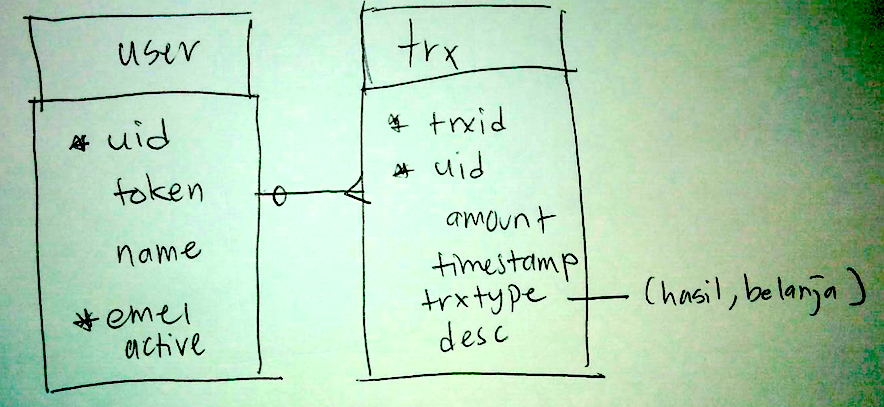 user
* uid
token
name
* emel
active
trx
* trxid
* uid
amount
timestamp
trxtype — (hasil, belanja)
desc